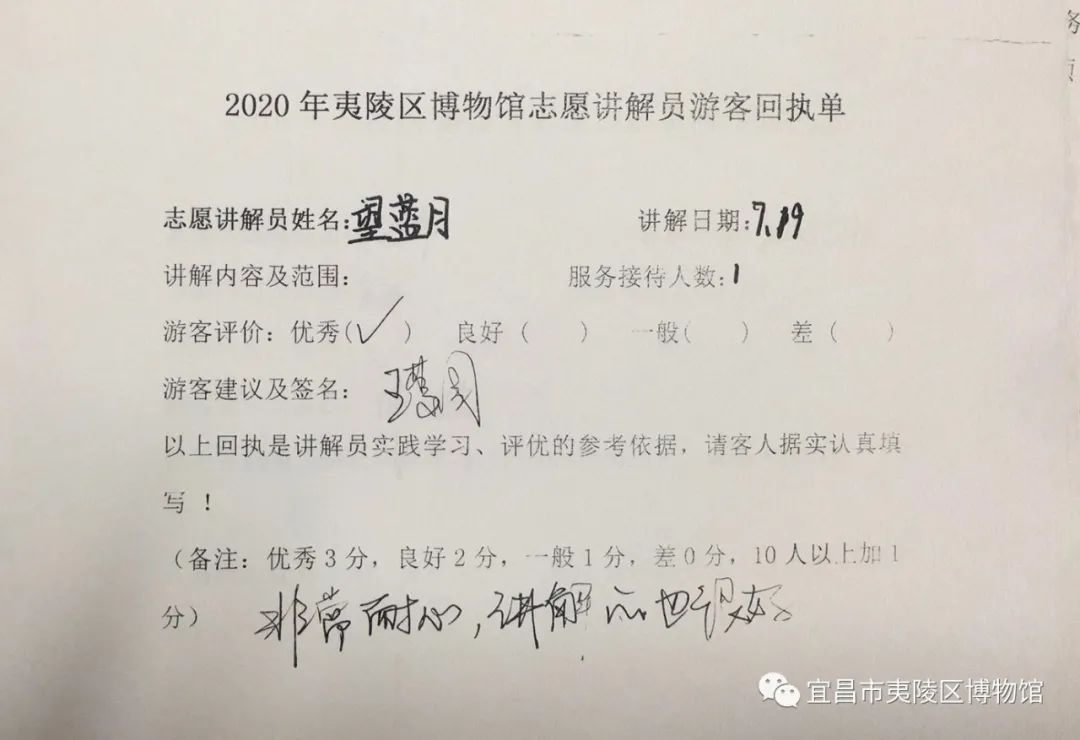 务
2020年夷陵区博物馆志愿讲解员游客回执单
志愿讲解员姓名:望蓝月 讲解日期:7.19
讲解内容及范围: 服务接待人数:1
游客评价: 优秀(✓) 良好( ) 一般( ) 差( )
游客建议及签名: 王
以上回执是讲解员实践学习、评优的参考依据，请客人据实认真填
写！
（备注: 优秀3分，良好2分，一般1分，差0分，10人以上加1
分） 非常耐心，讲解的也很好
宜昌市夷陵区博物馆